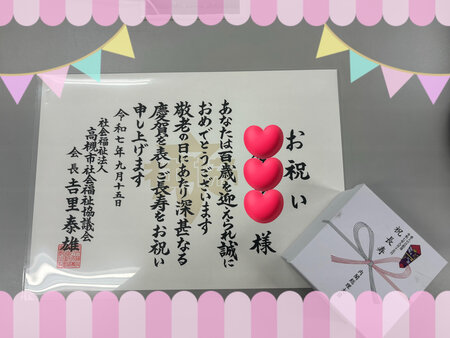 お祝い
様
あなたは百歳を迎えられ誠に
おめでとうございます
敬老の日にあたり深甚なる
慶賀を表しご長寿をお祝い
申し上げます
令和七年九月十五日
社会福祉法人
高槻市社会福祉協議会
会長 吉里泰雄
祝長寿